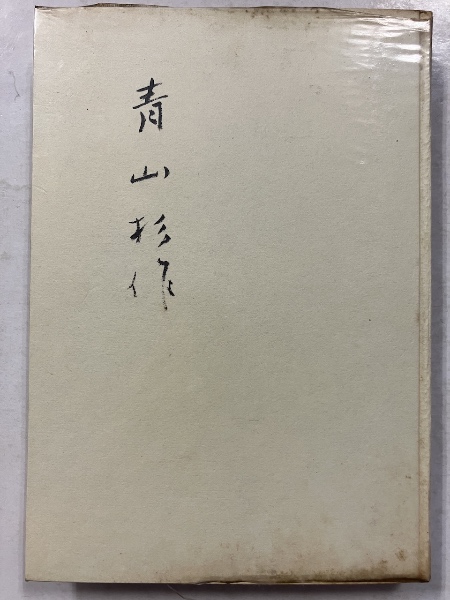 青山杉作